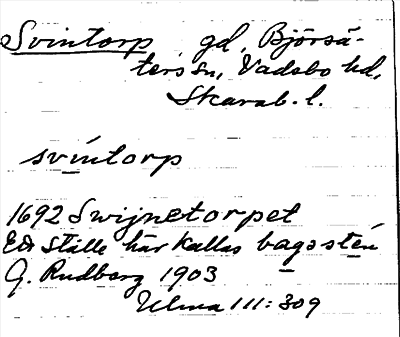 Svintorp gd, Björsä-
ters sn, Vadsbo hd,
Skarab. l.
svintorp
1692 Swijnetorpet
Ett Ställe här kallas bagastén
G. Rudberg 1903
Ulma 111:309